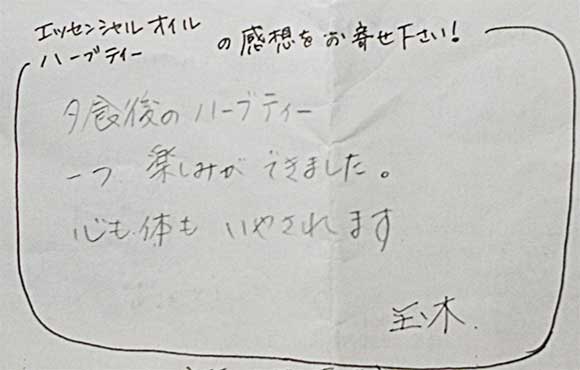 エッセンシャルオイル
ハーブティー の感想をお寄せ下さい!
夕食後のハーブティー
一つ 楽しみが できました。
心も体も いやされます